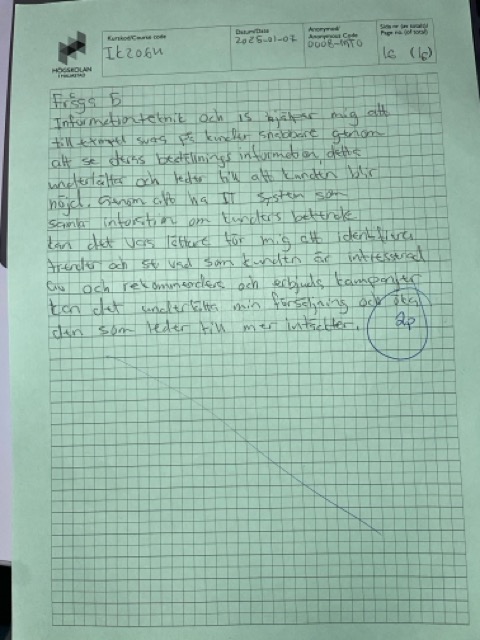 HÖGSKOLAN
I HALMSTAD
Kurskod/Course code
IK2064
Datum/Date
2025-01-07
Anonymkod/
Anonymous Code
0008-MTO
Sida nr (av totalt)/
Page no. (of total)
16 (16)
Fråga 5
Informationsteknik och IS hjälper mig att
till exempel svara på kunder snabbare genom
att se deras beställnings information, detta
underlättar och leder till att kunden blir
nöjd. Genom att ha IT system som
samla information om kunders beteende
kan det vara lättare för mig att identifiera
trender och se vad som kunden är intresserad
av och rekommendera och erbjuda kampanjer
kan det underlätta min försäljning och öka
den som leder till mer intäkter.
2p